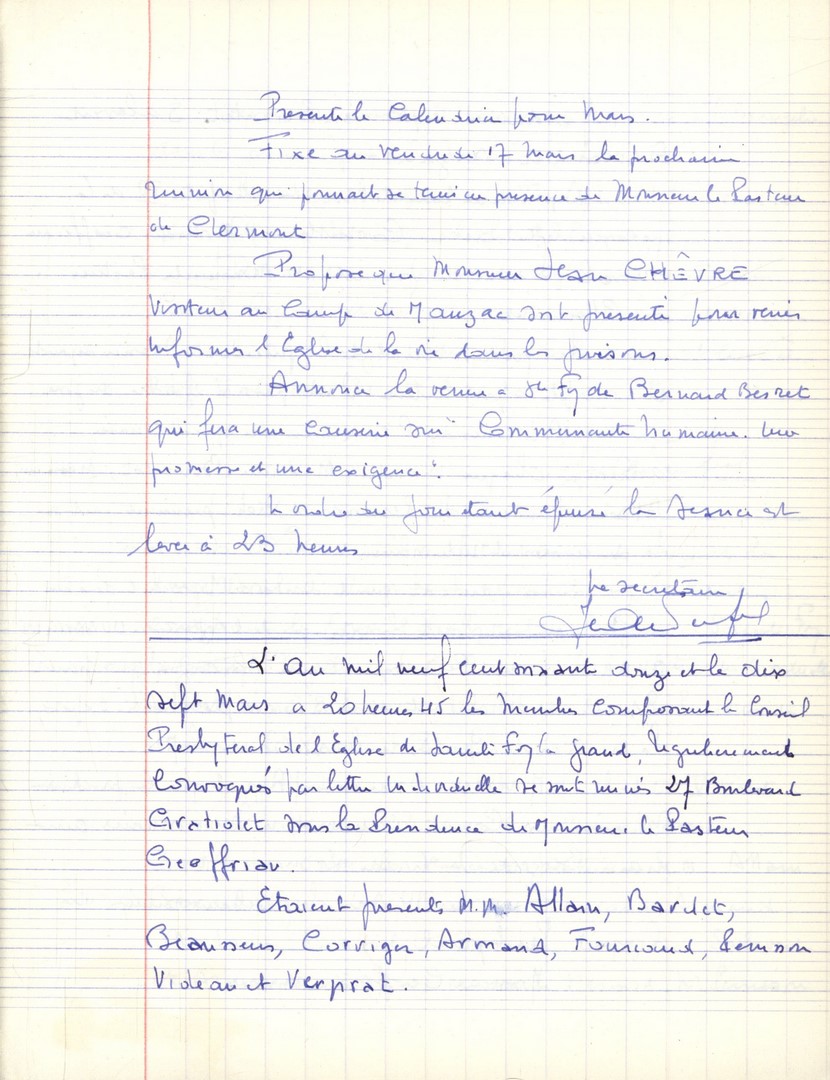 Presente le Calendrier pour Mars.
Fixe au vendredi 17 Mars la prochaine
reunion qui pourrait se tenir en presence de Monsieur le Pasteur
de Clermont
Propose que Monsieur Jean CHÊVRE
Visiteur au Camp de Mauzac soit presenti pour venir
informer l'Eglise de la vie dans les prisons.
Annonce la venue a Ste Foy de Bernard Besret
qui fera une Causerie sur "Communaute humaine. Une
promesse et une exigence".
L ordre du jour etant épuisé la seance est
levee à 23 heures
Le secretaire
L'an mil neuf cent soixante douze et le dix
sept Mars a 20 heures 45 les Membres Composant le Conseil
Presbyteral de l Eglise de Sainte Foy la Grande, regulierement
Convoqués par lettre individuelle se sont reunis 27 Boulevard
Gratiolet sous la Presidence de Monsieur le Pasteur
Geoffriau.
Etaient presents M.M. Allain, Bardet,
Armand,
Videau et Verprat.